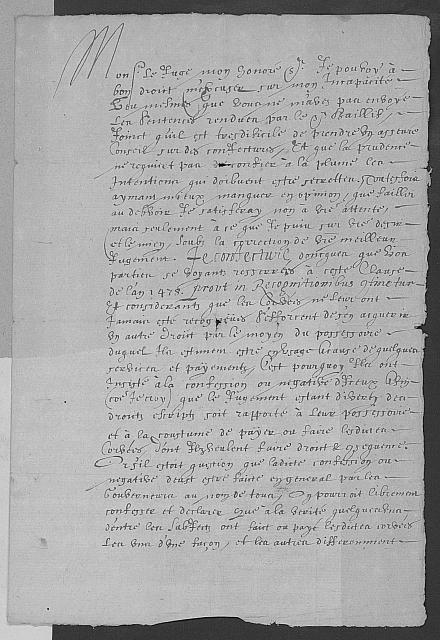 Mons.r le Juge mon honoré S.r Je pouvoy à
bon droit m'excuser sur mon Incapacité
Veu mesmes que vous ne m'aves pas envoyé
Les sentences rendues par le S.r Baillif,
Joinct qu'il est tresdificile de prendre un asseuré
Conseil sur des conjectures, Et que la prudence
ne requiet pas de confier à la plume les
Intentions qui doibvent estre secrettes, Toutesfois
aymant mieux manquer en opinion, que faillir
au debvoir Je satisferay non à vre attente,
mais seulement à ce que Je puis sur vre desir
et le mien, soubs la correction de vre meilleur
Jugement. Je conjecture doncques que vos
parties se voyants resserrés à ceste Clause
de l'an 1478. prout in Recognitionibus
Et considerants que les Corvees ne leur ont
Jamais esté recogneues s'efforcent d'en acquerir
un autre droit par le moyen du possessoire
duquel Ils estiment estre en usage à cause de quelques
services et payements, C'est pourquoy Ils ont
Insisté à la confession ou negative d'Iceux affin
(coe Je croy) que le Jugement estant diverty des
droits escripts soit rapporté à leur possessoire
et à la coustume de payer ou faire lesdites
corvées, dont Ils veulent faire droit & consequence.
Or s'il estoit question que ladite confession ou
negative deust estre faite en general par les
Gouverneurs au nom de tous, On pourroit librement
confesser et declarer que à la verité quelques uns
dentre les subjects ont fait ou payé lesdites corvees
Les uns d'une façon, et les autres differemment